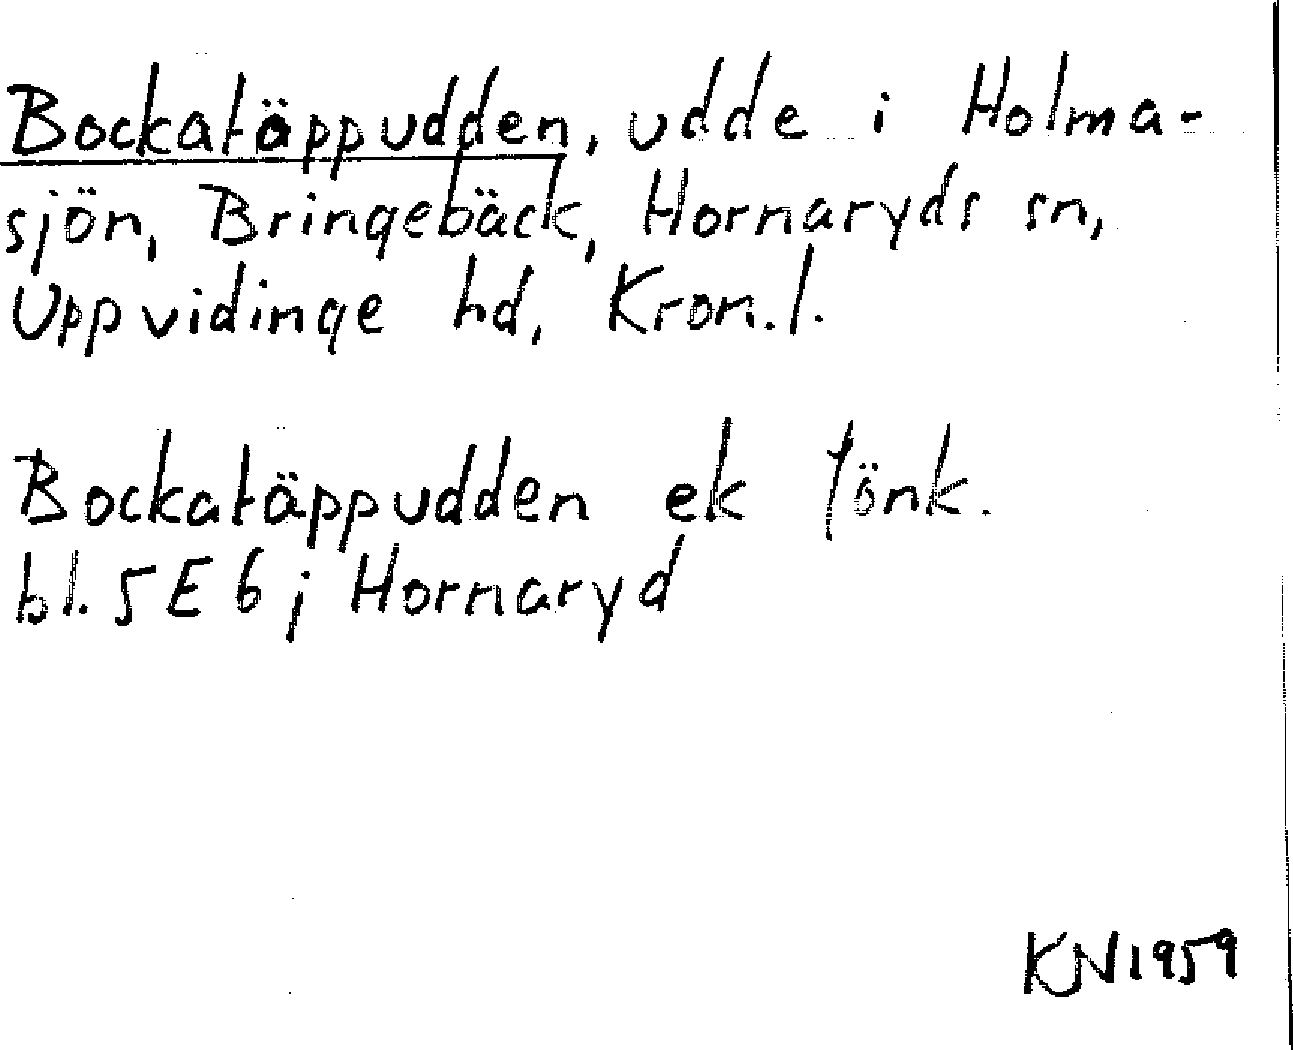 Bockatäppudden, udde i Holma-
sjön, Bringebäck, Hornaryds sn,
Uppvidinge hd, Kron.l.
Bockatäppudden ek
bl. 5E6j Hornaryd
KN1959